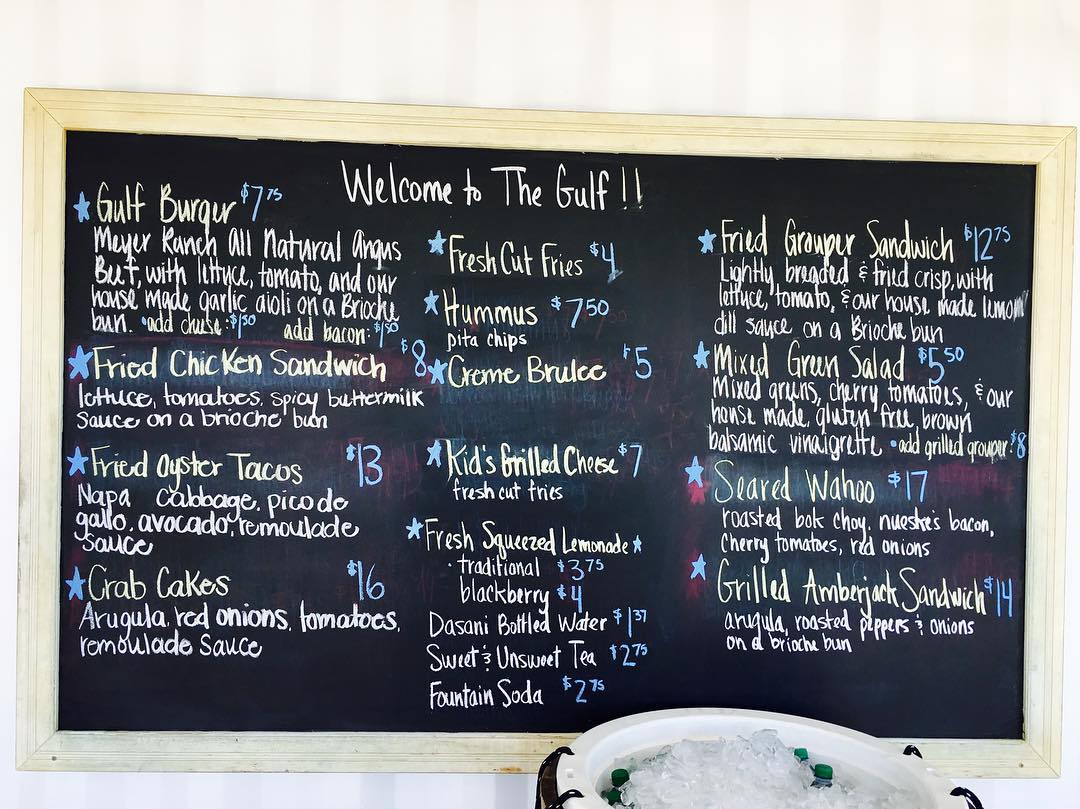 Welcome to The Gulf !!
Gulf Burger $7.75
Meyer Ranch All Natural Angus
Beef, with lettuce, tomato, and our
house made garlic aioli on a Brioche
bun. •add cheese: $1.50 add bacon: $1.50
Fried Chicken Sandwich $8
lettuce, tomatoes, spicy buttermilk
sauce on a brioche bun
Fried Oyster Tacos $13
Napa cabbage, pico de
gallo, avocado, remoulade
sauce
Crab Cakes $16
Arugula, red onions, tomatoes,
remoulade sauce
Fresh Cut Fries $4
Hummus $7.50
pita chips
Creme Brulee $5
Kid's Grilled Cheese $7
fresh cut fries
Fresh Squeezed Lemonade
• traditional $3.75
blackberry $4
Dasani Bottled Water $1.37
Sweet & Unsweet Tea $2.75
Fountain Soda $2.75
Fried Grouper Sandwich $12.75
Lightly breaded & fried crisp, with
lettuce, tomato, & our house made lemon
dill sauce on a Brioche bun
Mixed Green Salad $5.50
Mixed greens, cherry tomatoes, & our
house made, gluten free, brown
balsamic vinaigrette •add grilled grouper: $8
Seared Wahoo $17
roasted bok choy, nueske's bacon,
cherry tomatoes, red onions
Grilled Amberjack Sandwich $14
arugula, roasted peppers & onions
on a brioche bun